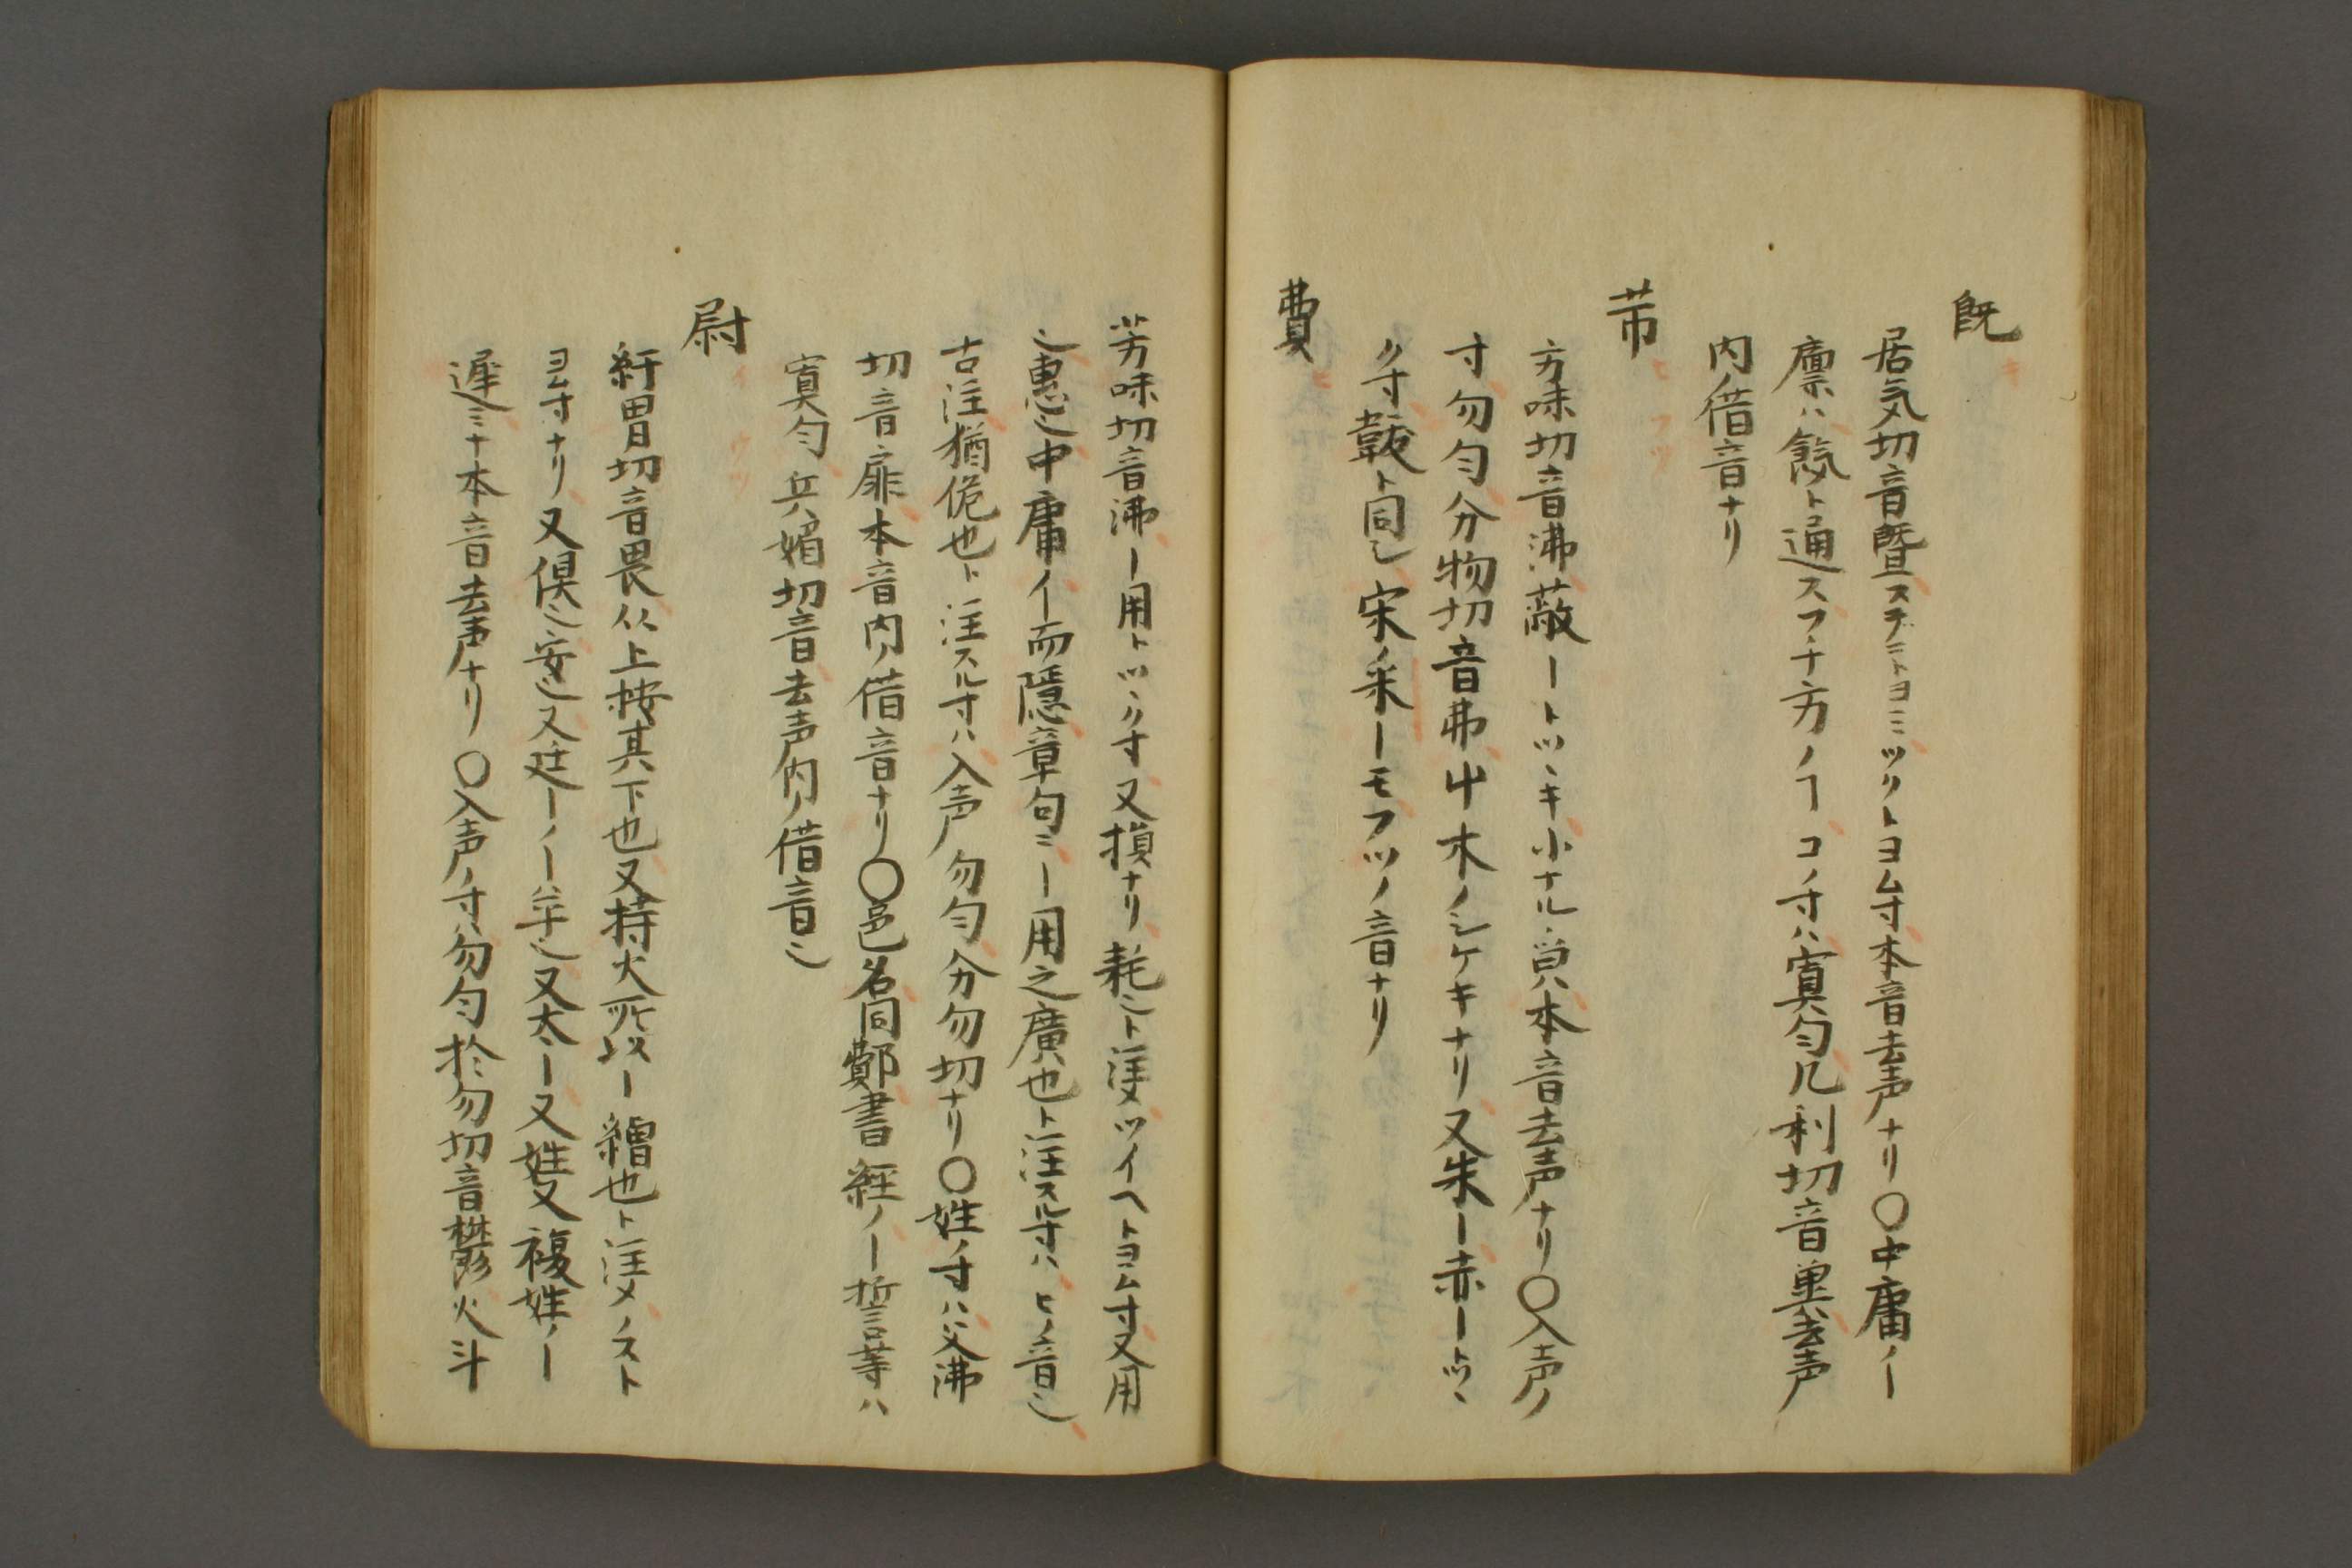 既
居気切音曁スデニトヨミツクトヨム寸本音去声ナリ〇中庸ノー
廩ハ餼ト通スフチ方ノヿコノ寸ハ寘匀几利切音兾去声
内ノ借音ナリ
芾
方味切音沸蔽ートツヽキ小ナル皃本音去声ナリ〇入声ノ
寸勿匀分物切音弗屮木ノシケキナリ又朱ー赤ートツヽ
ク寸韍ト同シ宋ノ米ーモフツノ音ナリ
費
芳味切音沸ー用トツヽク寸又損ナリ耗也ト注メツイヘトヨム寸又用
也惠也中庸イー而隱章句ニー用之廣也ト注スル寸ハヒノ音也
古注猶佹也ト注スル寸ハ入声勿匀分勿切ナリ〇姓ノ寸ハ父沸
切音扉本音内ノ借音ナリ〇邑名同鄪書経ノー誓等ハ
寘匀兵媚切音去声内ノ借音也
尉
紆胃切音畏从上按其下也又持火所以ー繒也ト注メノスト
ヨム寸ナリ又候也安也又廷ーノーハ平也又太ー又姓又複姓ノー
遲ミナ本音去声ナリ〇入声ノ寸ハ勿匀於勿切音欝火斗